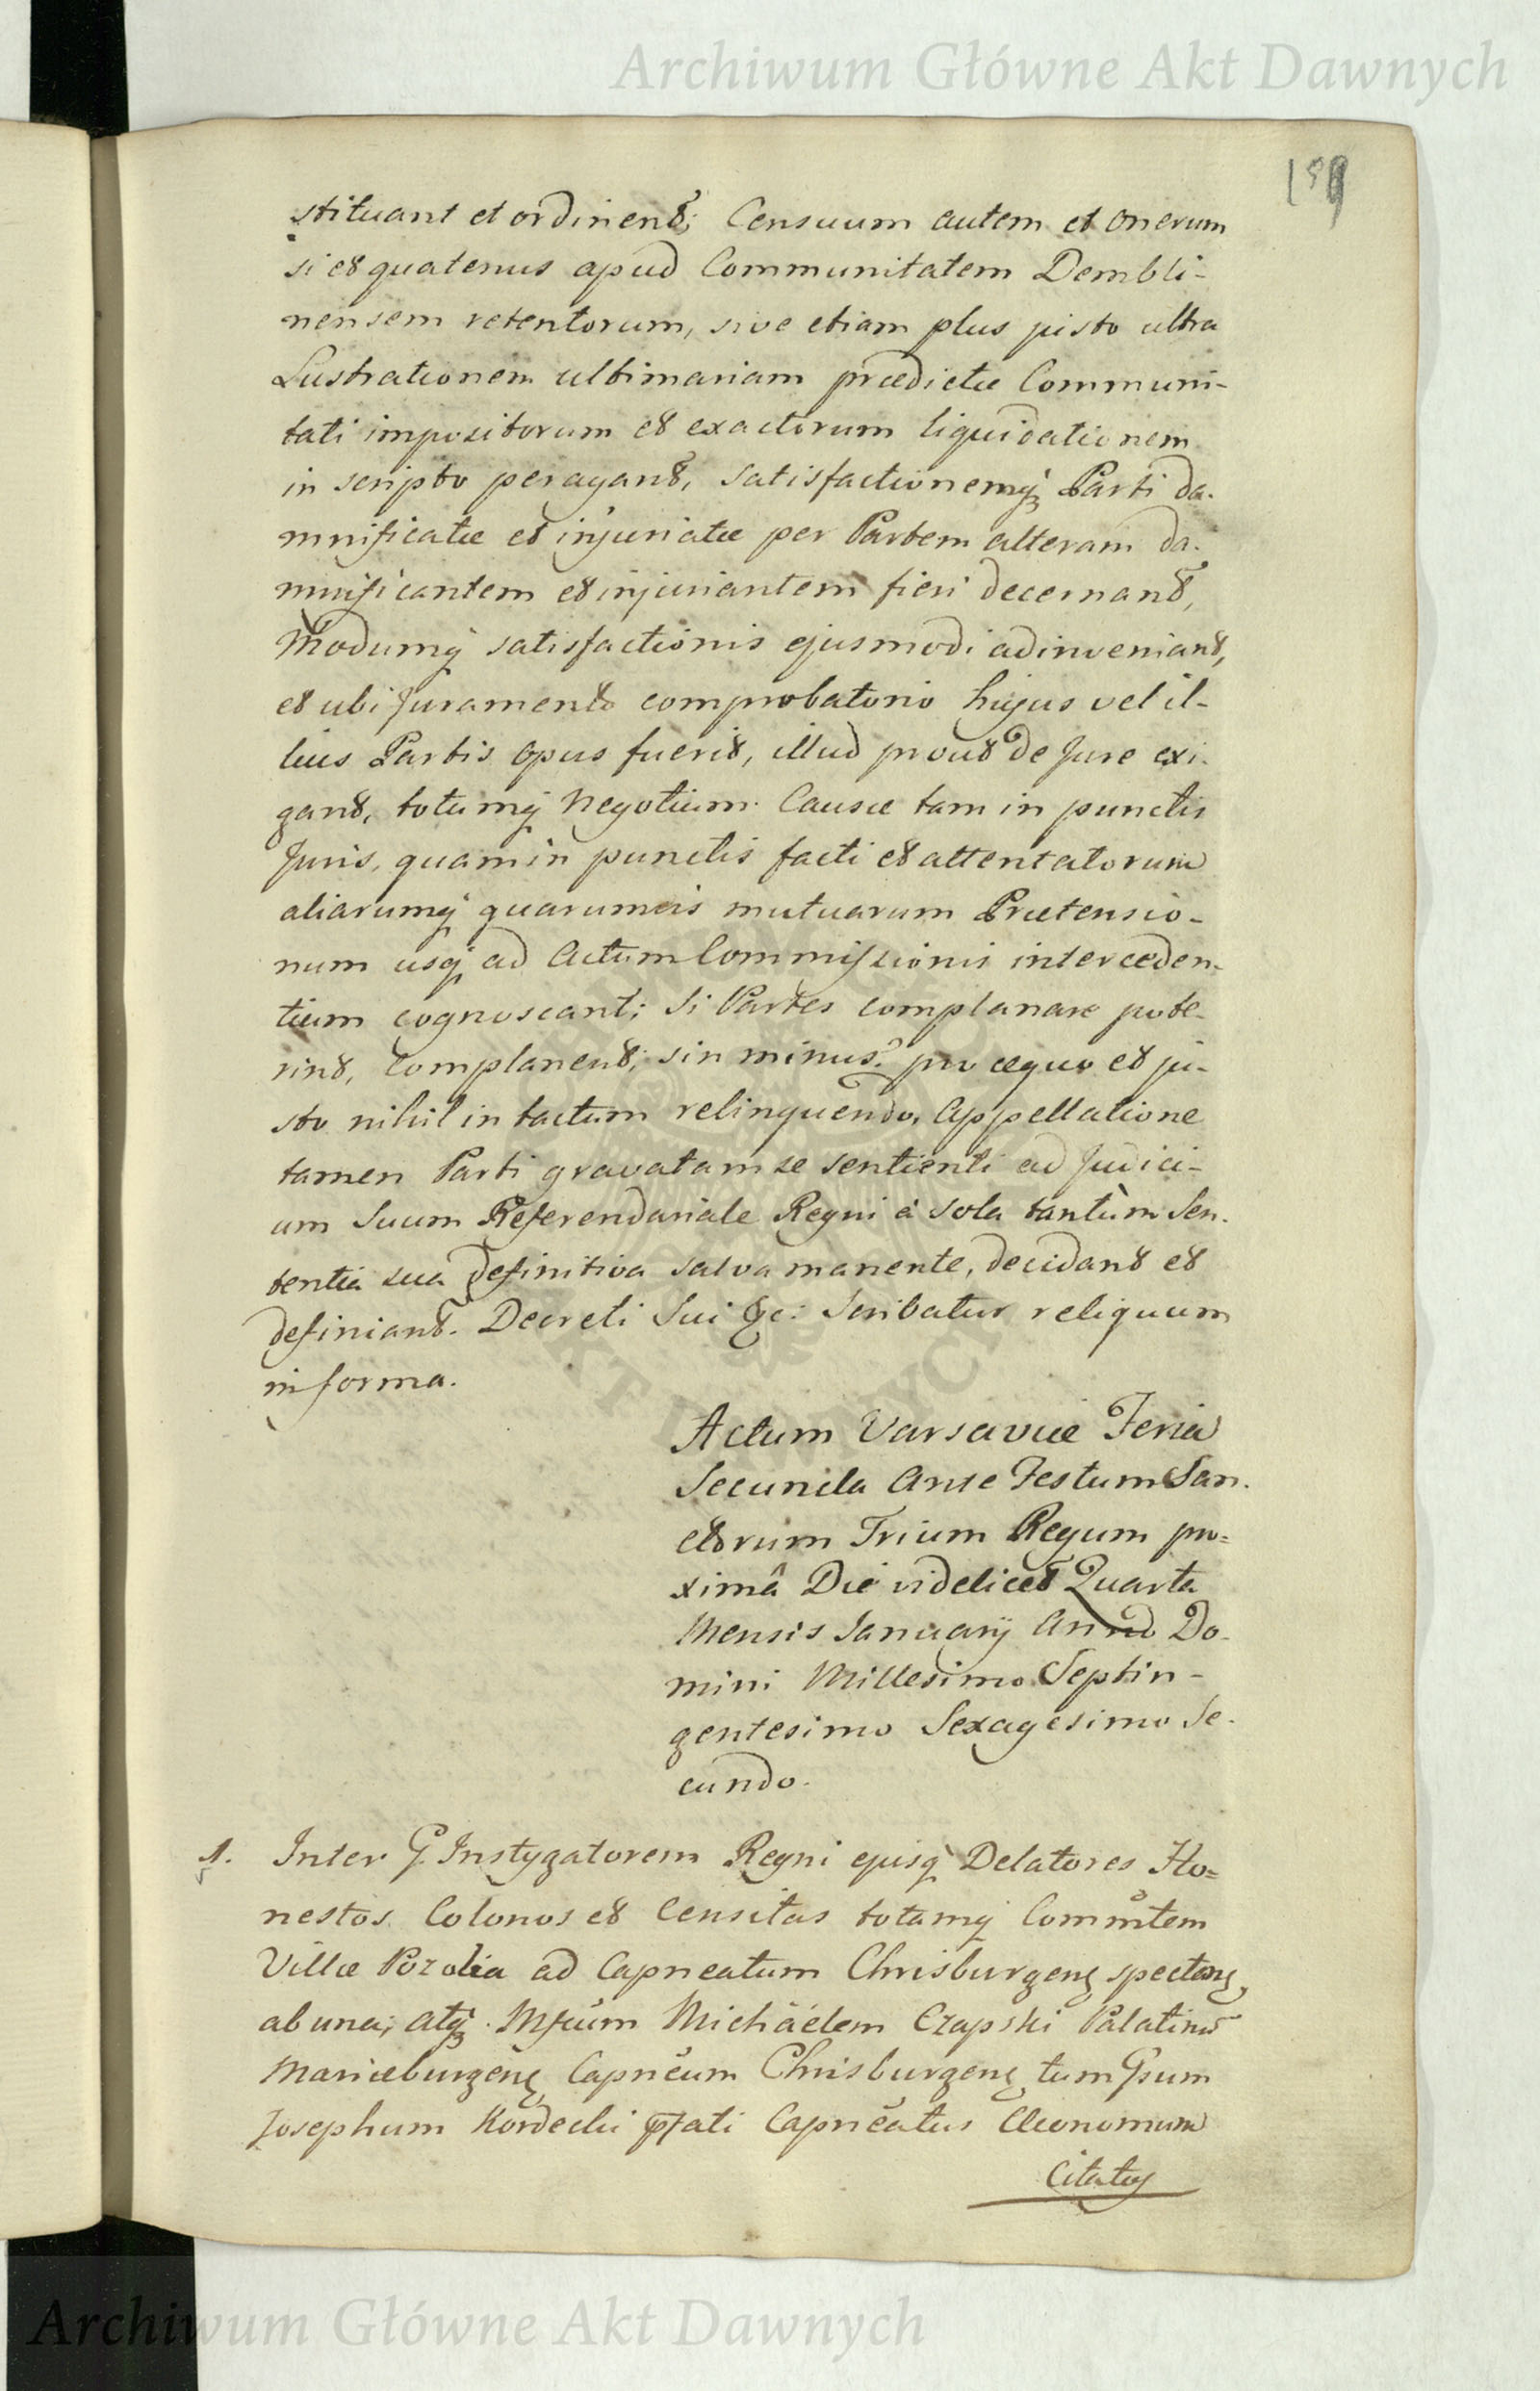 Archiwum Główne Akt Dawnych
159
stituant et ordinent; Censuum autem et Onerum
si et quatenus apud Communitatem Dembli-
nensem retentorum, sive etiam plus justo ultra
Lustrationem ultimariam prædictæ Communi-
tati impositorum et exactorum liquidationem
in scripto peragant, satisfactionemq; Parti da-
mnificatæ et injuriatæ per Partem alteram da-
mnificantem et injuriantem fieri decernant,
Modumq; satisfactionis ejusmodi adinveniant,
et ubi Juramento comprobatorio hujus vel il-
lius Partis opus fuerit, illud prout de Jure exi-
gant, totumq; Negotium Causæ tam in punctis
Juris, quam in punctis facti et attentatorum
aliarumq; quarumvis mutuarum Prætensio-
num usq; ad Actum Commissionis interceden-
tium cognoscant; Si Partes complanare pote-
rint, Complanent; sin minus? pro æquo et ju-
sto nihil intactum relinquendo, Appellatione
tamen Parti gravatam se sentienti ad Judici-
um Suum Referendariale Regni à sola tantùm Sen-
tentia sua definitiva salva manente, decidant et
definiant. Decreti Sui &c: Scribatur reliquum
in forma.
Actum Varsaviæ Feria
Secunda Ante Festum San-
ctorum Trium Regum pro-
ximâ Die videlicet Quarta
Mensis Januarij Anno Do-
mini Millesimo Septin-
gentesimo Sexagesimo Se-
cundo.
1. Inter G. Instygatorem Regni ejusq; Delatores Ho-
nestos Colonos et Censitas totamq; Commtem
Villæ Pozolia ad Capneatum Chrisburgens spectans
ab una; atq; Mfcum Michaëlem Czapski Palatinũ
Mariæburgens Capneum Chrisburgens tum Gsum
Josephum Kordecki pfati Capneatus Œconomum
Citatos
Archiwum Główne Akt Dawnych